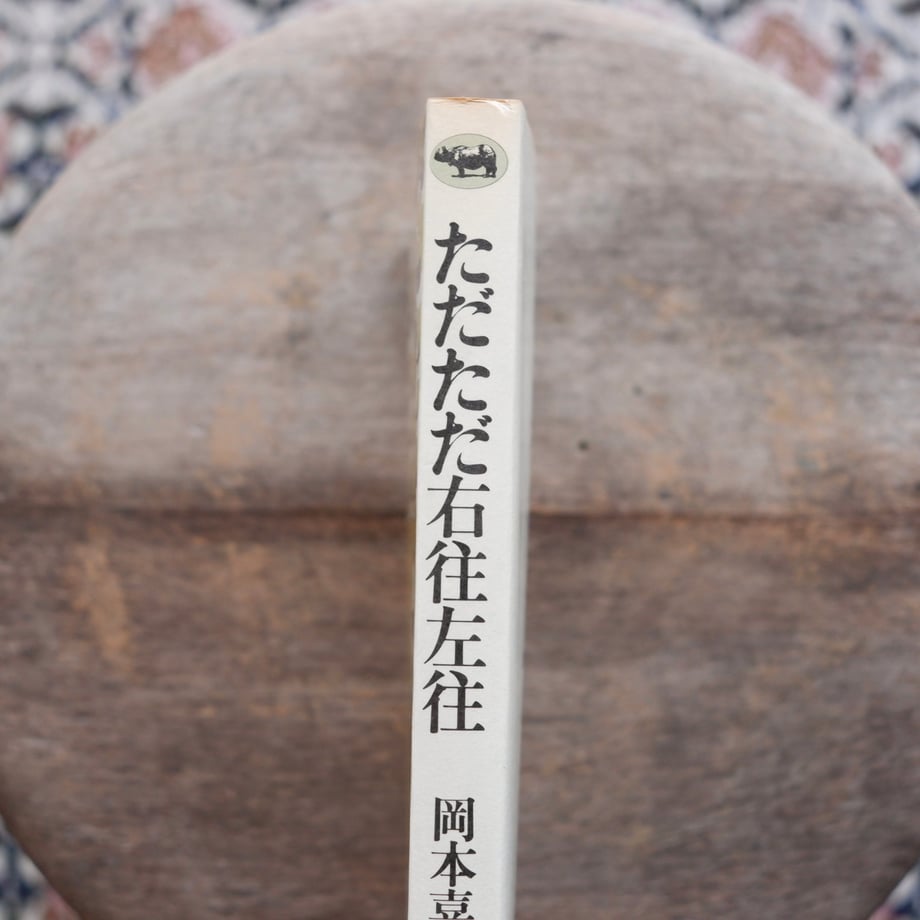 ただただ右往左往
岡本喜